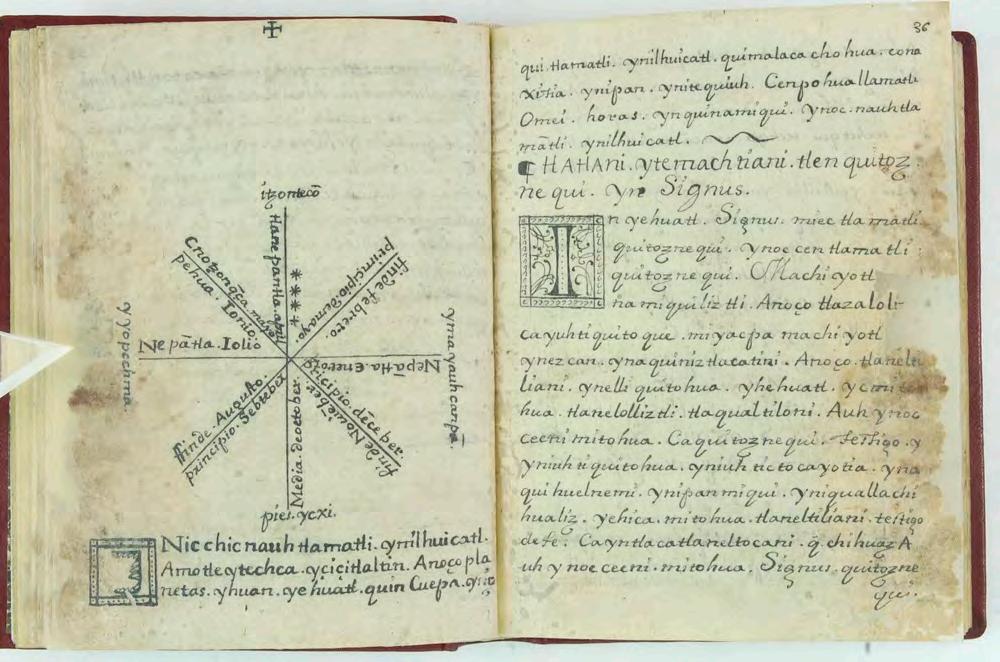 itzontecō
tlanepantla abril
principio de mayo.
fin de febrero.
pehua. Ionio.
Nepātla. Iolio
Nepātla. Enero
yyopochma.
ymayauhcanpa.
ffinde. Augusto.
principio. Sebteber
Media. de octeber.
principio. deceber.
finde Noueber.
pies. ycxi.
INic chicnauh tlamatli. yn ilhuicatl.
Amotle ytechca. ycicitlaltin. Anoço pla
netas. yhuan. ye huatl. quin Cuepa.
36
qui. tlamatli. ynilhuicatl. quimalaca cho hua. cona
xitia. ynipan. ynitequiuh. Cenpohuallamatli
Omei. horas. yn quinamiqui. ynoc. nauhtla
mātli. ynilhuicatl.
¶ tLAtLAni. ytemachtiani. tlen quitoz
ne qui. yn Signus.
In yehuatl. Signus. miec tlamatli.
quitoznequi. ynoc cen tlamatli
quitoznequi. Machiyotl
namiquiliztli. Anoço tlazalol
ca yuhtiquitoque. miyacpa machiyotl
ynezcan. ynaquiniztlacatini. Anoço. tlanelti
liani. ynelli quitohua. yhehuatl. ycmito
hua. tlanelolliztli. tlaqualtiloni. Auh ynoc
ceeni mitohua. Caquitoznequi. testigo. y
yniuh tiquitohua. yniuh tictocayotia. yna
qui huelnemi. ynipanmiqui. yniquallachi
hualiz. yehica. mitohua. tlaneltiliani. testigo
de fe. Cayntlacatlaneltocani. q̄chihuaz A
uh ynoc ceeni. mitohua. Signus. quitozne
qui.